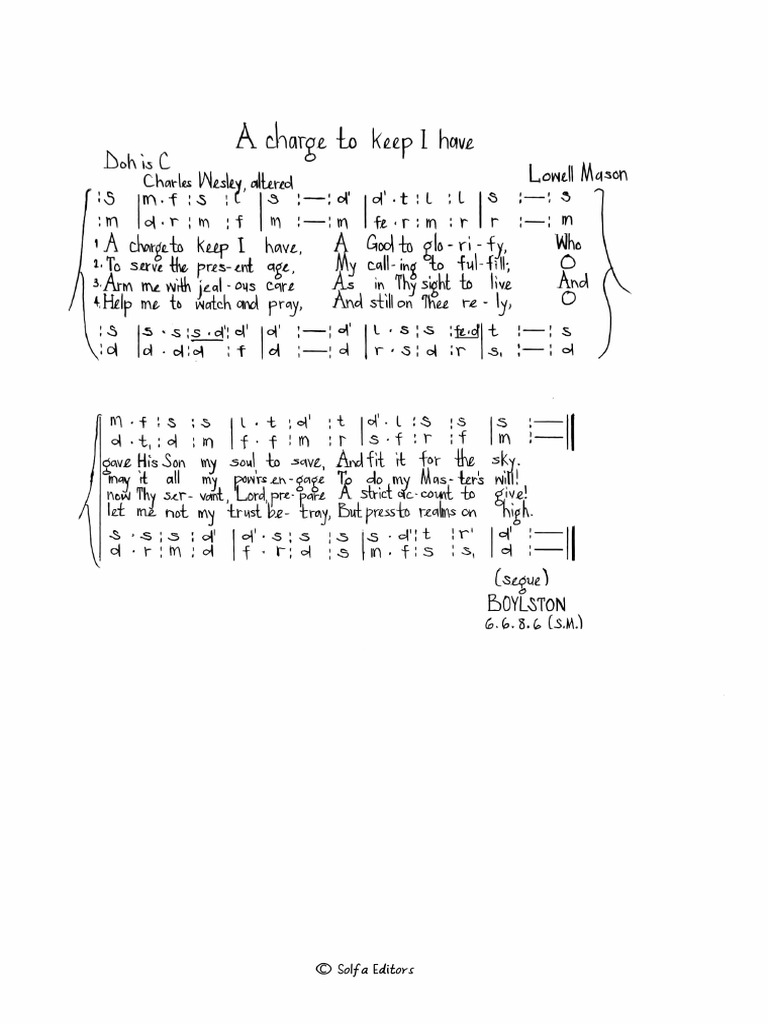 A charge to keep I have
Doh is C
Charles Wesley, altered
Lowell Mason
:s |m.f :s :l |s :— :d' |d'.t :l :l |s :— :s
:m |d.r :m :f |m :— :m |fe.r :m :r |r :— :m
1 A charge to keep I have, A God to glo-ri-fy, Who
2. To serve the pres-ent age, My call-ing to ful-fill; O
3. Arm me with jeal-ous care As in Thy sight to live And
4. Help me to watch and pray, And still on Thee re-ly, O
:s |s.s :s.d' :d' |d' :— :d' |l.s :s :fe.d |t :— :s
:d |d.d :d :f |d :— :d |r.s :d :r |s, :— :d
m.f :s :s |l.t :d' :t |d'.l :s :s |s :—||
d.t, :d :m |f.f :m :r |s.f :r :f |m :—||
gave His Son my soul to save, And fit it for the sky.
may it all my pow'rs en-gage To do my Mas-ter's will!
now Thy ser-vant, Lord, pre-pare A strict ac-count to give!
let me not my trust be-tray, But press to realms on high.
s.s :s :d' |d'.s :s :s |s.d' :t :r' |d' :—||
d.r :m :d |f.r :d :s |m.f :s :s, |d :—||
(segue)
BOYLSTON
6.6.8.6 (S.M.)
© Solfa Editors